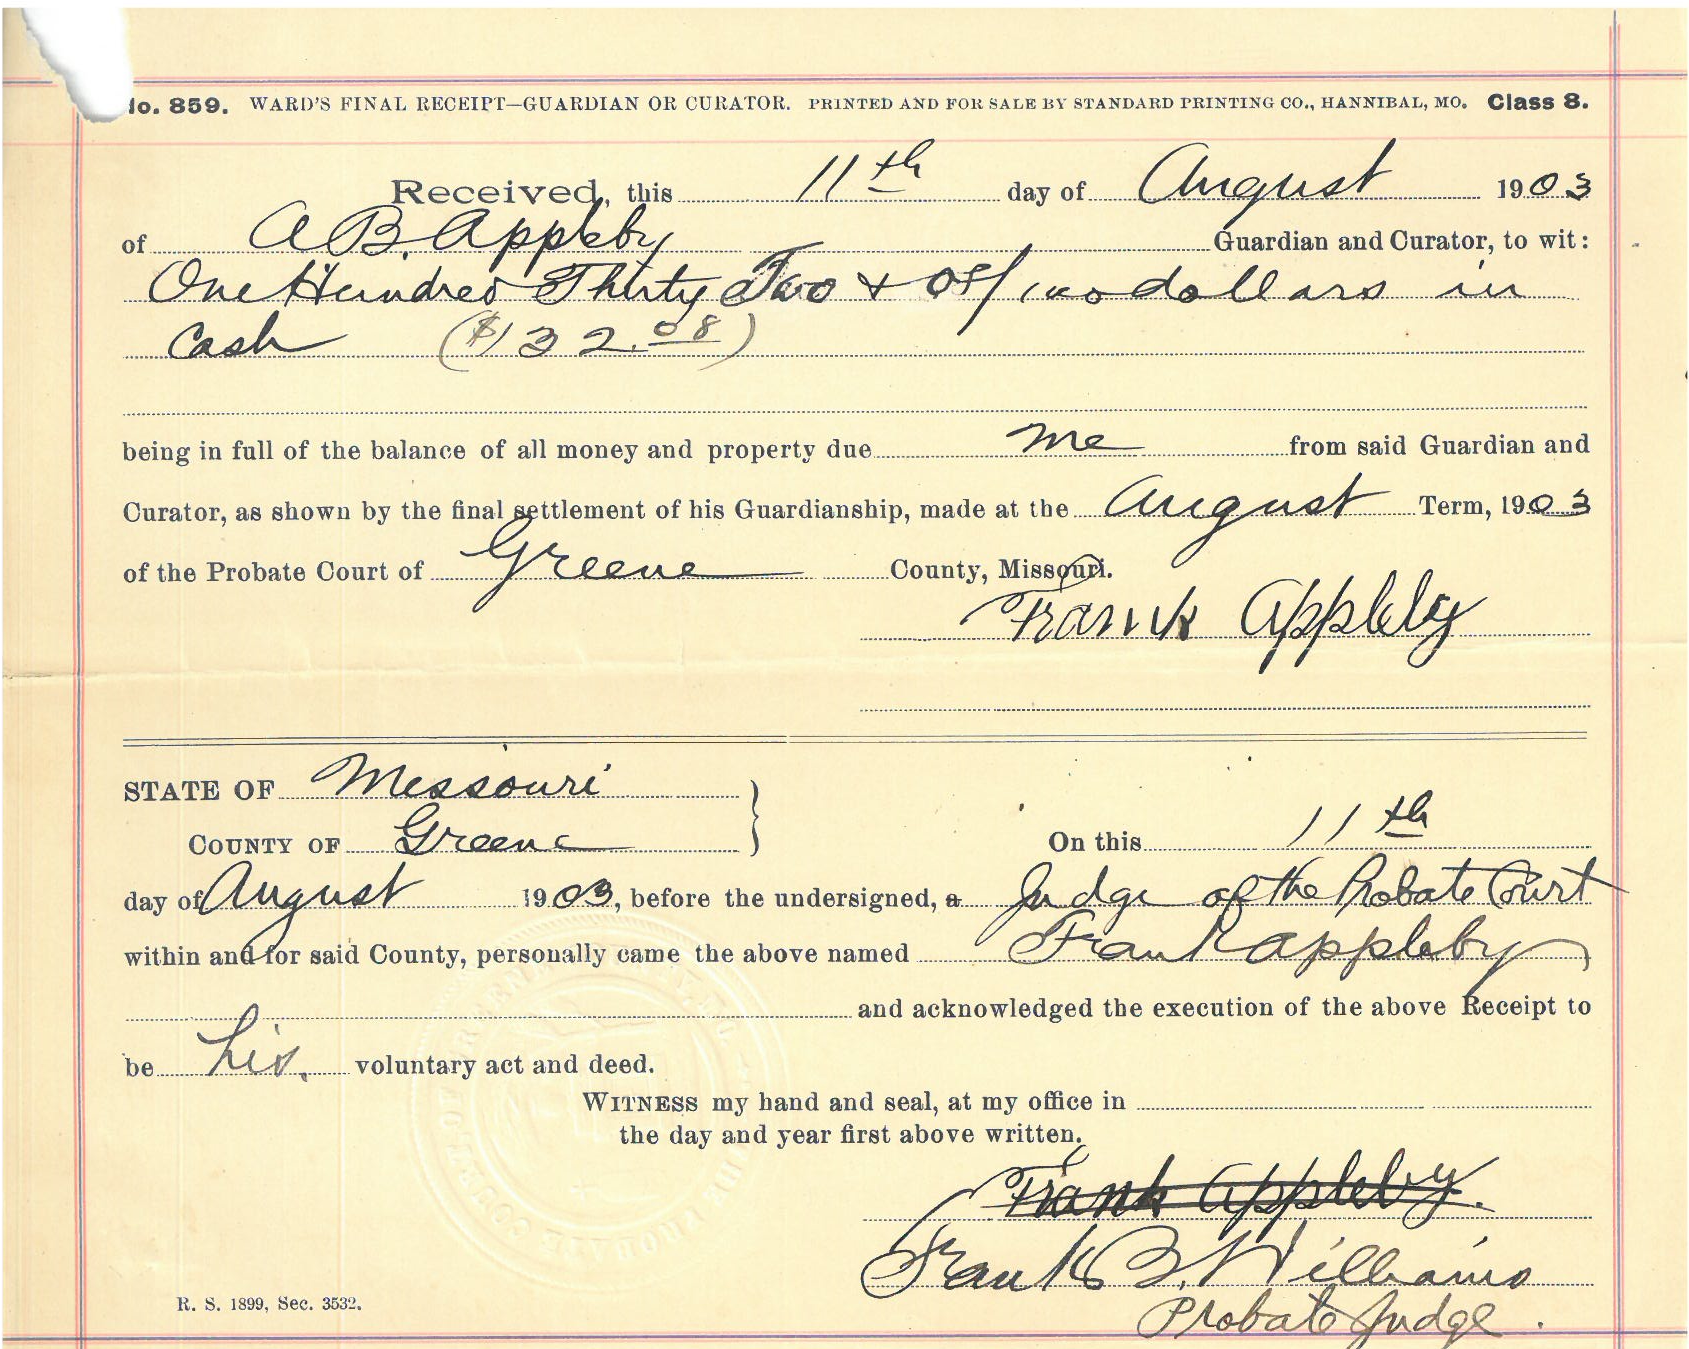 No. 859. WARD'S FINAL RECEIPT—GUARDIAN OR CURATOR. PRINTED AND FOR SALE BY STANDARD PRINTING CO., HANNIBAL, MO. Class 8.
Received, this 11th day of August 1903
of A B. Appleby Guardian and Curator, to wit:
One Hundred Thirty Two & 08/100 dollars in
Cash ($132.08)
being in full of the balance of all money and property due me from said Guardian and
Curator, as shown by the final settlement of his Guardianship, made at the August Term, 1903
of the Probate Court of Greene County, Missouri.
Frank Appleby
STATE OF Missouri
COUNTY OF Greene On this 11th
day of August 1903, before the undersigned, a Judge of the Probate Court
within and for said County, personally came the above named Frank Appleby
and acknowledged the execution of the above Receipt to
be his voluntary act and deed.
WITNESS my hand and seal, at my office in
the day and year first above written.
Frank Appleby.
Frank B. Williams
Probate Judge.
R. S. 1899, Sec. 3532.